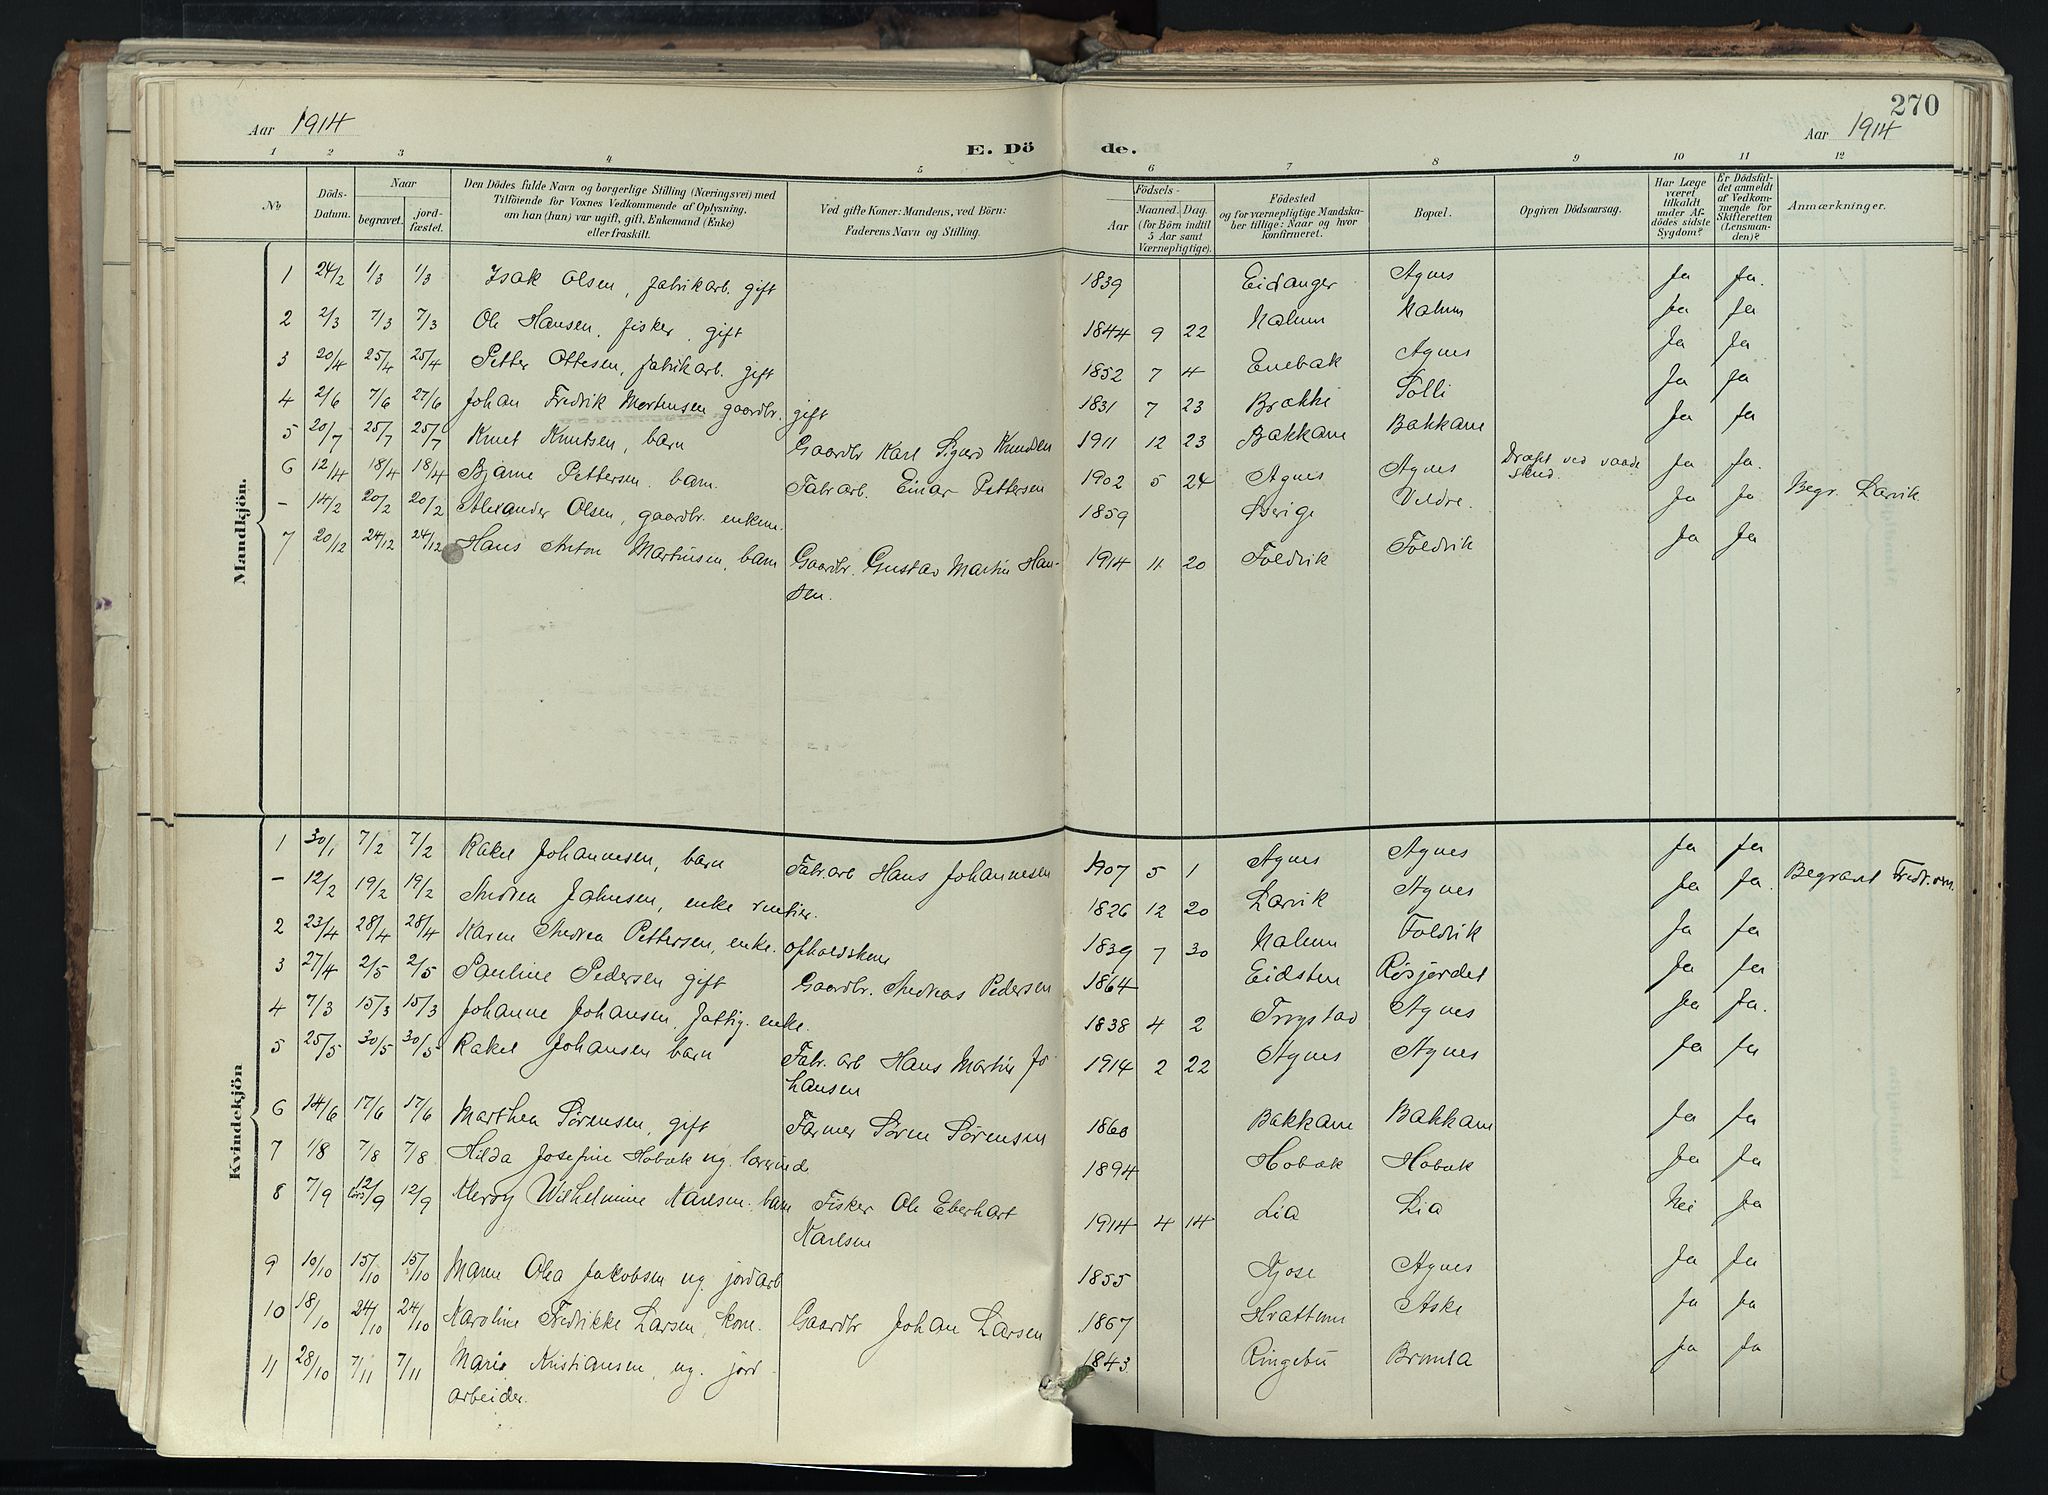 270
Aar 1914
Aar 1914
E. Dö de.
1 2 3 4 5 6 7 8 9 10 11 12
№
Döds-Datum.
Naar
begravet.
jord-fæstet.
Den Dödes fulde Navn og borgerlige Stilling (Næringsvei) med
Tilföiende for Voxnes Vedkommende af Oplysning,
om han (hun) var ugift, gift, Enkemand (Enke)
eller fraskilt.
Ved gifte Koner: Mandens, ved Börn:
Faderens Navn og Stilling.
Födsels-
Aar
Maaned. Dag.
(for Börn indtil
5 Aar samt
Værnepligtige).
Födested
og for værnepligtige Mandska-
ber tillige: Naar og hvor
konfirmeret.
Bopæl.
Opgiven Dödsaarsag.
Har Læge
været
tilkaldt
under Af-
dödes sidste
Sygdom?
Er Dödsfal-
det anmeldt
af Vedkom-
mende for
Skifteretten
(Lensman-
den)?
Anmærkninger.
Mandkjön.
1 24/2 1/3 1/3 Isak Olsen, fabrikarb. gift 1839 Eidanger Agnes Ja Ja.
2 2/3 7/3 7/3 Ole Hansen, fisker, gift 1844 9 22 Nalum Nalum Ja Ja
3 20/4 25/4 25/4 Petter Ottesen, fabrikarb. gift 1852 7 4 Enebak Agnes Ja Ja
4 2/6 7/6 27/6 Johan Fredrik Mortensen, gaardbr. gift 1831 7 23 Brække Solli Ja Ja
5 20/7 25/7 25/7 Knut Knutsen, barn Gaardbr Karl Sigurd Knudsen 1911 12 23 Bakkane Bakkane Ja Ja
6 12/4 18/4 18/4 Bjarne Pettersen. barn. Fabr arb. Einar Pettersen 1902 5 24 Agnes Agnes Dræpt ved vaade Ja Ja.
skud.
- 14/2 20/2 20/2 Alexander Olsen, gaardbr. enkem. 1859 Sverige Veldre. Ja Ja Begr. Larvik
7 20/12 24/12 24/12 Hans Anton Martinsen, barn Gaardbr. Gustav Martin Han- 1914 11 20 Foldvik Foldvik Ja Ja
sen.
Kvindekjön
1 30/1 7/2 7/2 Rakel Johannesen, barn Fabr. arb Hans Johannesen 1907 5 1 Agnes Agnes Ja Ja
- 12/2 19/2 19/2 Andrea Jahnsen, enke rentier. 1826 12 20 Larvik Agnes Ja Ja. Begravet Fredr.vern.
2 23/4 28/4 28/4 Karen Andrea Pettersen, enke. opholdskone 1839 7 30 Nalum Foldvik Ja Ja
3 27/4 2/5 2/5 Pauline Pedersen gift Gaardbr. Andreas Pedersen 1864 Eidsten Røsjordet Ja Ja
4 7/3 15/3 15/3 Johanne Johansen, fattig. enke. 1838 4 2 Trygstad Agnes Ja Ja.
5 25/5 30/5 30/5 Rakel Johansen barn Fabr. arb Hans Martin Jo 1914 2 22 Agnes Agnes Ja Ja
hansen
6 14/6 17/6 17/6 Marthea Sørensen, gift Farmer Søren Sørensen 1860 Bakkane Bakkane Ja Ja
7 1/8 7/8 7/8 Hilda Josefine Hobæk ug. lærerinde 1894 Hobæk Hobæk Ja Ja
8 7/9 12/9 12/9 Wilhelmine Karlsen. barn Fisker Ole Eberhart 1914 4 14 Lia Lia Nei Ja
Karlsen
9 10/10 15/10 15/10 Maren Olea Jakobsen ug. jordarb 1855 Kjose Agnes Ja Ja
10 18/10 24/10 24/10 Karoline Fredrikke Larsen, kone. Gaardbr Johan Larsen 1867 Hvattum Aske Ja Ja
11 28/10 7/11 7/11 Maria Kristiansen, ug. jord 1843 Ringebu Brunla Ja Ja
arbeider.